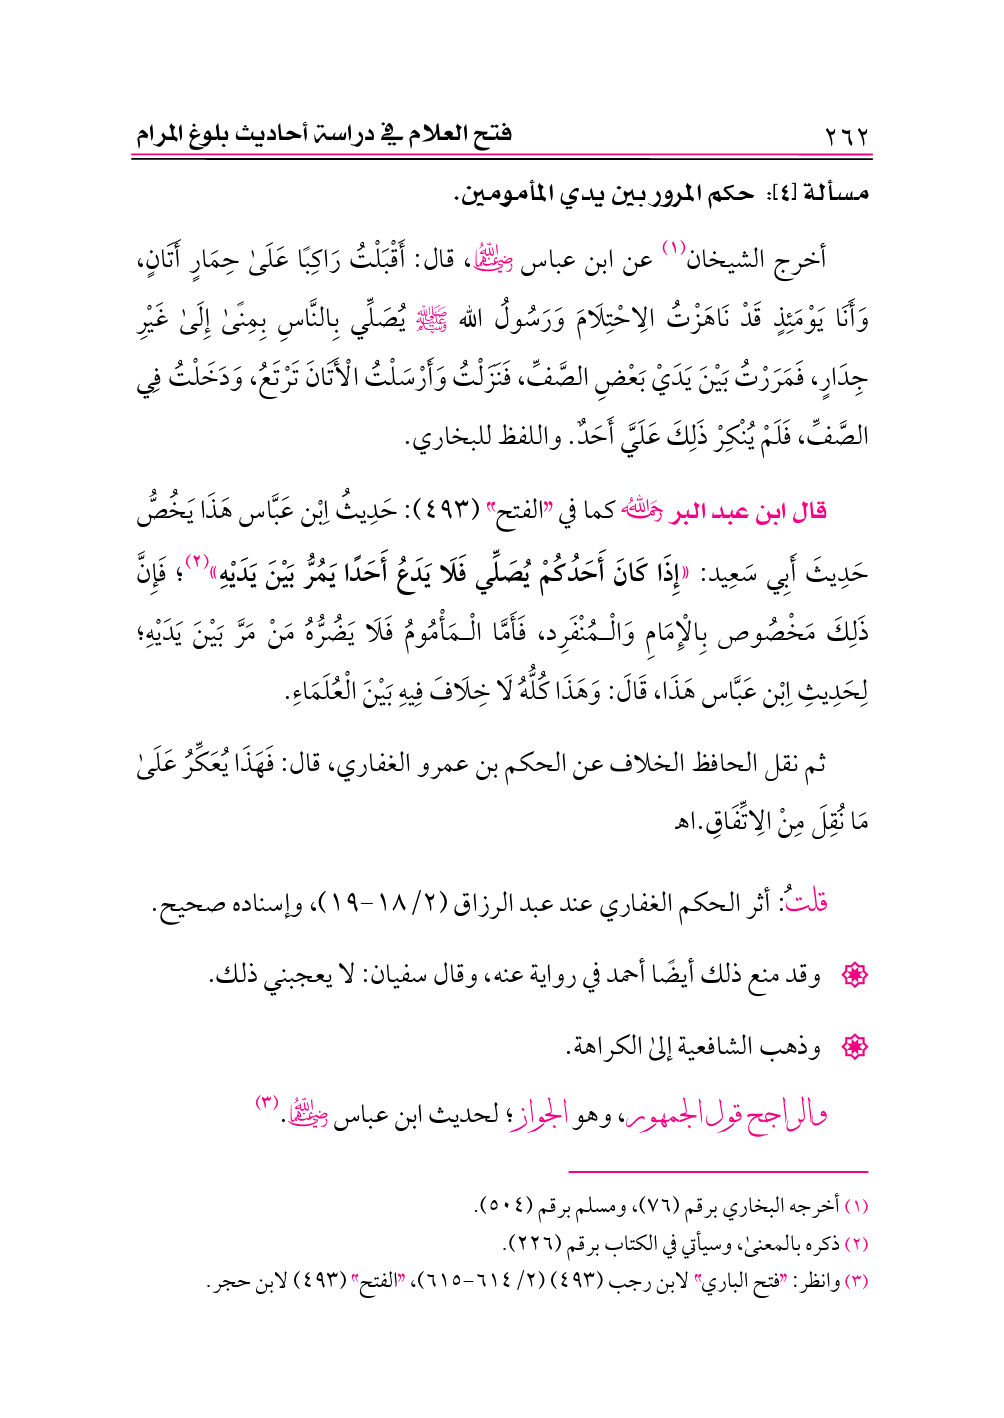 ٢٦٢ فتح العلام في دراسة أحاديث بلوغ المرام
مسألة [٤]: حكم المرور بين يدي المأمومين.
أخرج الشيخان(١) عن ابن عباس رضي الله عنهما، قال: أَقْبَلْتُ رَاكِبًا عَلَىٰ حِمَارٍ أَتَانٍ،
وَأَنَا يَوْمَئِذٍ قَدْ نَاهَزْتُ الِاحْتِلَامَ وَرَسُولُ الله ﷺ يُصَلِّي بِالنَّاسِ بِمِنًىٰ إِلَىٰ غَيْرِ
جِدَارٍ، فَمَرَرْتُ بَيْنَ يَدَيْ بَعْضِ الصَّفِّ، فَنَزَلْتُ وَأَرْسَلْتُ الْأَتَانَ تَرْتَعُ، وَدَخَلْتُ فِي
الصَّفِّ، فَلَمْ يُنْكِرْ ذَلِكَ عَلَيَّ أَحَدٌ. واللفظ للبخاري.
قال ابن عبد البر رحمه الله كما في "الفتح" (٤٩٣): حَدِيثُ اِبْن عَبَّاس هَذَا يَخُصُّ
حَدِيثَ أَبِي سَعِيد: «إِذَا كَانَ أَحَدُكُمْ يُصَلِّي فَلَا يَدَعُ أَحَدًا يَمُرُّ بَيْنَ يَدَيْهِ»(٢)؛ فَإِنَّ
ذَلِكَ مَخْصُوص بِالْإِمَامِ وَالْـمُنْفَرِد، فَأَمَّا الْـمَأْمُومُ فَلَا يَضُرُّهُ مَنْ مَرَّ بَيْنَ يَدَيْهِ؛
لِحَدِيثِ اِبْن عَبَّاس هَذَا، قَالَ: وَهَذَا كُلُّهُ لَا خِلَافَ فِيهِ بَيْنَ الْعُلَمَاءِ.
ثم نقل الحافظ الخلاف عن الحكم بن عمرو الغفاري، قال: فَهَذَا يُعَكِّرُ عَلَىٰ
مَا نُقِلَ مِنْ الِاتِّفَاقِ.اهـ
قلتُ: أثر الحكم الغفاري عند عبد الرزاق (٢/ ١٨-١٩)، وإسناده صحيح.
وقد منع ذلك أيضًا أحمد في رواية عنه، وقال سفيان: لا يعجبني ذلك.
وذهب الشافعية إلىٰ الكراهة.
والراجح قول الجمهور، وهو الجواز؛ لحديث ابن عباس رضي الله عنهما.(٣)
(١) أخرجه البخاري برقم (٧٦)، ومسلم برقم (٥٠٤).
(٢) ذكره بالمعنىٰ، وسيأتي في الكتاب برقم (٢٢٦).
(٣) وانظر: "فتح الباري" لابن رجب (٤٩٣) (٢/ ٦١٤-٦١٥)، "الفتح" (٤٩٣) لابن حجر.